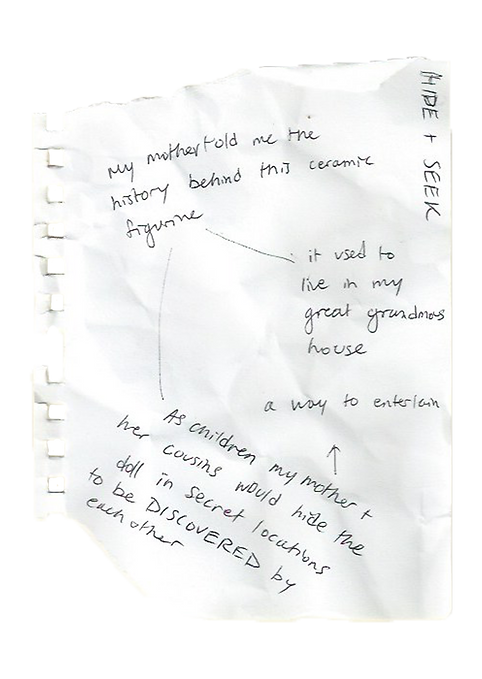 HIDE + SEEK
My mother told me the
history behind this ceramic
figurine
it used to
live in my
great grandmas
house
a way to entertain
As children my mother +
her cousins would hide the
doll in secret locations
to be DISCOVERED by
each other